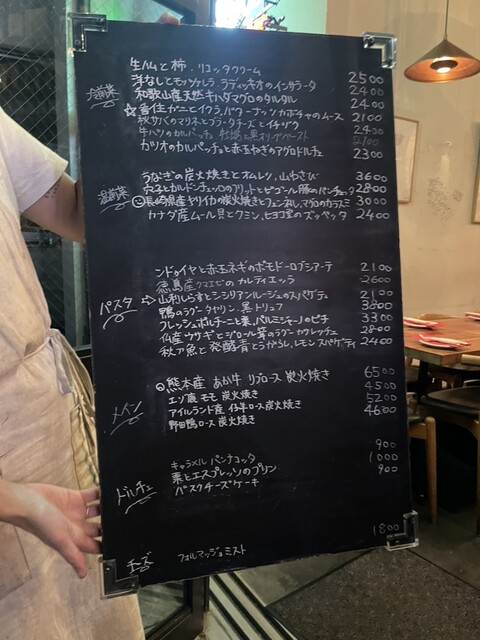 冷前菜
生ハムと柿、リコッタクリーム
洋なしとモッツァレラ、ラディッキオのインサラータ 2500
和歌山産天然キハダマグロのタルタル 2400
☆香住ガニとイクラ、バターナッツカボチャのムース 2400
秋サバのマリネとブラータチーズとイチジク 2100
牛ハツのカルパッチョ 2400
カツオのカルパッチョと赤玉ねぎのアグロドルチェ 2300
温前菜
うなぎの炭火焼きとオムレツ、山わさび 3600
穴子とカルドンチェッロのフリットとビゴール豚のパンチェッタ 2800
長崎県産ヤリイカの炭火焼きとフェンネル、マグロのカラスミ 3000
カナダ産ムール貝とクミン、ヒヨコ豆のズッペッタ 2400
パスタ
ンドゥイヤと赤玉ネギのポモドーロ ブシアーテ 2100
徳島産クマエビのカルティエッラ 2600
⇨山利しらすとシシリアンルージュのスパゲティ 2100
鴨のラグー タヤリン 黒トリュフ 3800
フレッシュポルチーニと栗、パルミジャーノのピチ 3300
仏産ウサギとジロール茸のラグー カサレッチェ 2800
秋刀魚と発酵青とうがらし、レモン スパゲティ 2400
メイン
熊本産 あか牛 リブロース 炭火焼き 6500
エゾ鹿 モモ 炭火焼き 4500
アイルランド産 仔羊ロース 炭火焼き 5200
野田鴨ロース 炭火焼き 4600
ドルチェ
キャラメル パンナコッタ 900
栗とエスプレッソのプリン 1000
バスクチーズケーキ 900
チーズ
フォルマッジョミスト 1800